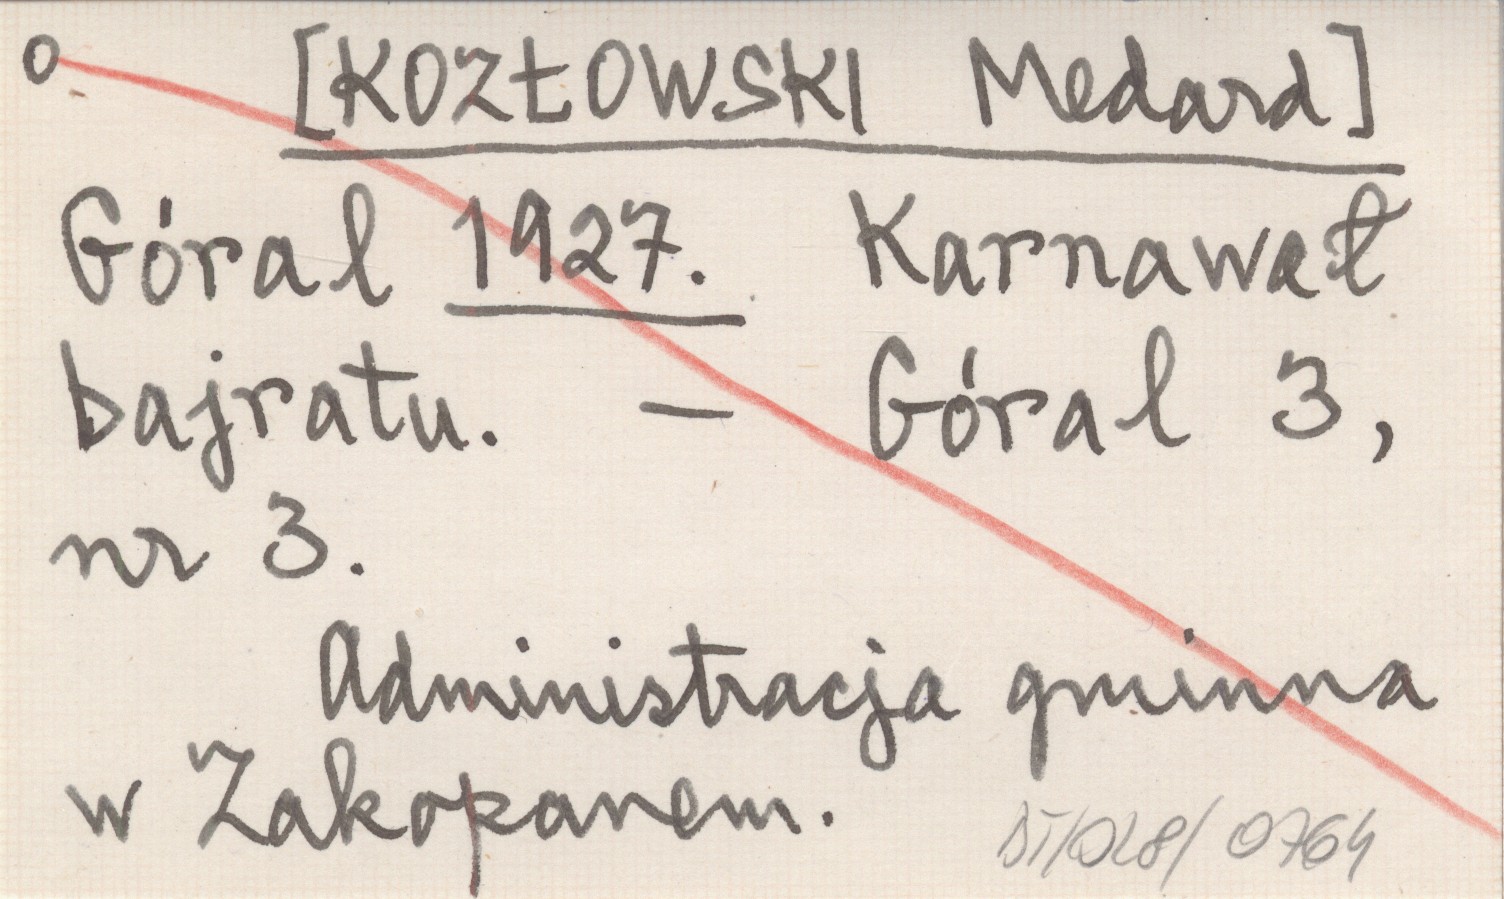 o [KOZŁOWSKI Medard]
Góral 1927. Karnawał
bajratu. — Góral 3,
nr 3.
Administracja gminna
w Zakopanem.
0764